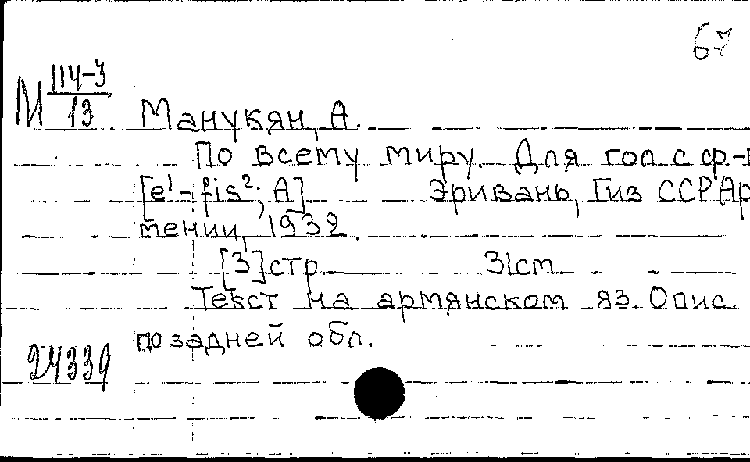 67
М 114-3
13
Манукян, А.
По всему миру. Для гол. с ф-п
[e¹-fis²; A] Эривань, Гиз ССР Ар
мении, 1932.
[3] стр. 31 cm.
Текст на армянском яз. Опис.
по задней обл.
24339